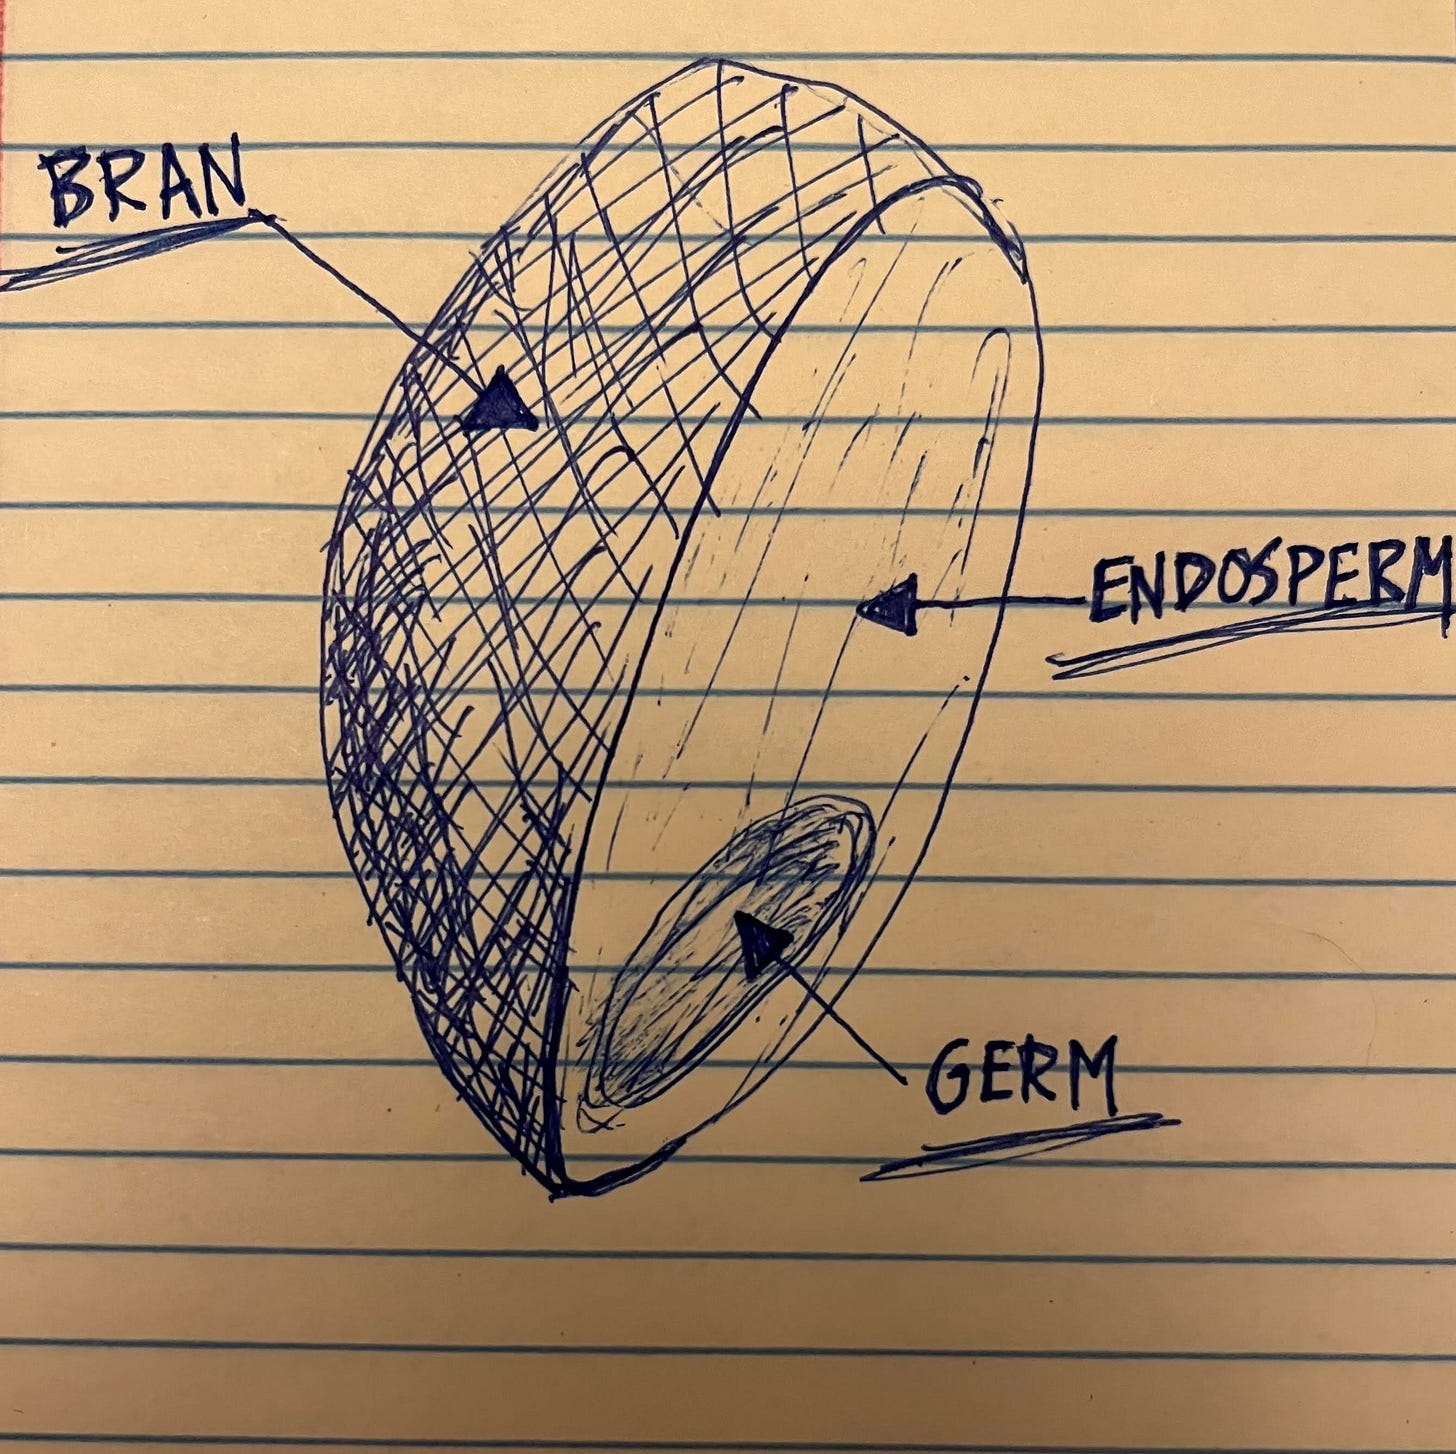 BRAN
ENDOSPERM
GERM